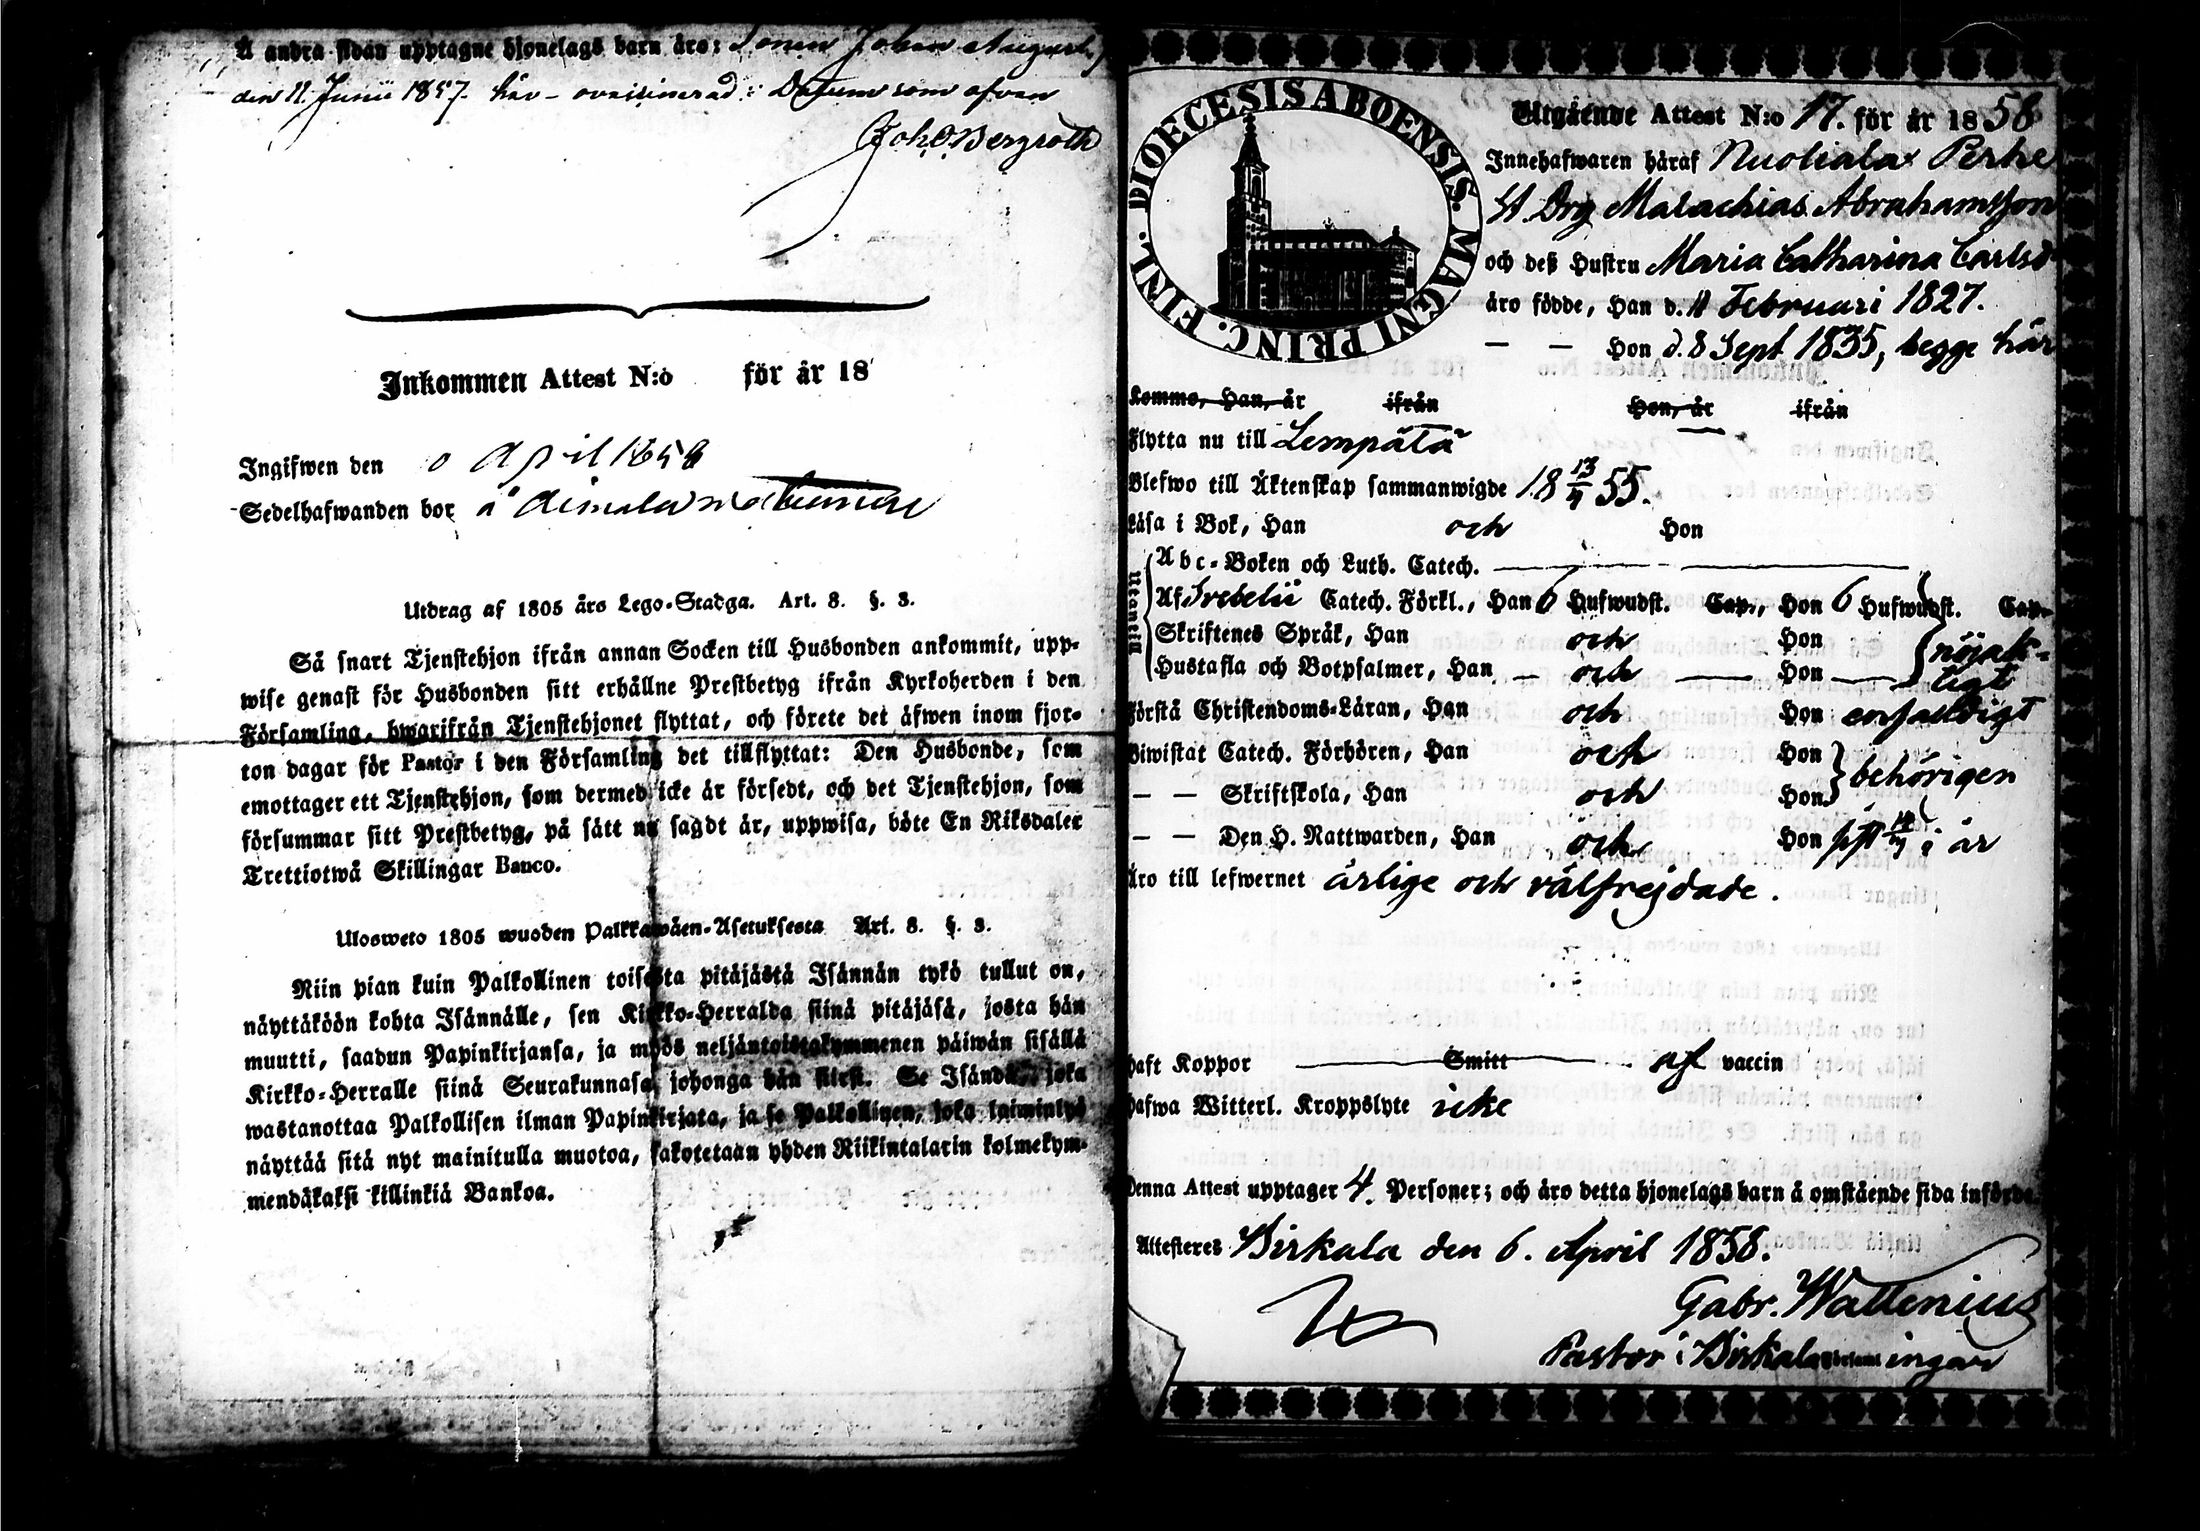 Å andra sidan upptagne hjonelags barn äro: Sonen Johan August,
den 11 Junii 1857. här - ovaccinerad: Datum som ofvan
Joh O Bergroth
Inkommen Attest N:o för år 18
Ingifwen den April 1858
Sedelhafwanden bor å
Utdrag af 1805 års Lego-Stadga. Art. 8. §. 3.
Så snart Tjenstehjon ifrån annan Socken till Husbonden ankommit, upp-
wise genast för Husbonden sitt erhållne Prestbetyg ifrån Kyrkoherden i den
Församling, hwarifrån Tjenstehjonet flyttat, och förete det äfwen inom fjor-
ton dagar för Pastor i den Församling det tillflyttat: Den Husbonde, som
emottager ett Tjenstehjon, som dermed icke är försedt, och det Tjenstehjon, som
försummar sitt Prestbetyg, på sätt nu sagdt är, uppwisa, böte En Riksdaler
Trettiotwå Skillingar Banco.
Ulosweto 1805 wuoden Palkkawäen-Asetuksesta Art. 8. §. 3.
Niin pian kuin Palkollinen toisesta pitäjästä Isännän tykö tullut on,
näyttäköön kohta Isännälle, sen Kirkko-Herralda siinä pitäjäsä, josta hän
muutti, saadun Papinkirjansa, ja myös neljäntoistakymmenen päiwän sisällä
Kirkko-Herralle siinä Seurakunnasa, johonga hän siirsi. Se Isändä, joka
wastanottaa Palkollisen ilman Papinkirjata, ja se Palkollinen, joka laiminlyö
näyttää sitä nyt mainitulla muotoa, sakotetaan yhden Riikintalarin kolmekym-
mendäkaksi killinkiä Bankoa.
DIOECESIS ABOENSIS. MAGNI PRINC. FINL.
Utgående Attest N:o 17. för år 1858
Innehafwaren häraf Nuoliala Perke
Malachias Abrahamsson
och deß Hustru Maria Catharina Carlsd
äro födde, Han d. 11 Februari 1827.
— — Hon d. 8 Sept 1835, begge här
Komme, Han, år ifrån Hon, år ifrån
Flytta nu till Lempälä
Blefwo till Äktenskap sammanwigde 18 13/4 55.
Läsa i Bok, Han och Hon
Utantill
Abc-Boken och Luth. Catech.
Af Svebelii Catech. Förkl., Han 6 Hufwudst. Cap., Hon 6 Hufwudst. Cap.
Skriftenes Språk, Han och Hon nöjak-
Hustafla och Botpsalmer, Han — och — Hon — ligt
Förstå Christendoms-Läran, Han och Hon enfaldigt
Biwistat Catech. Förhören, Han och Hon behörigen
— — Skriftskola, Han och Hon
— — Den H. Nattwarden, Han och Hon i år
Äro till lefwernet ärlige och välfrejdade.
Haft Koppor Smitt af vaccin
Hafwa Witterl. Kroppslyte icke
Denna Attest upptager 4. Personer; och äro detta hjonelags barn å omstående sida införde.
Attesteres Birkala den 6. April 1858.
Gabr. Wallenius
Pastor i Birkala Församlingar